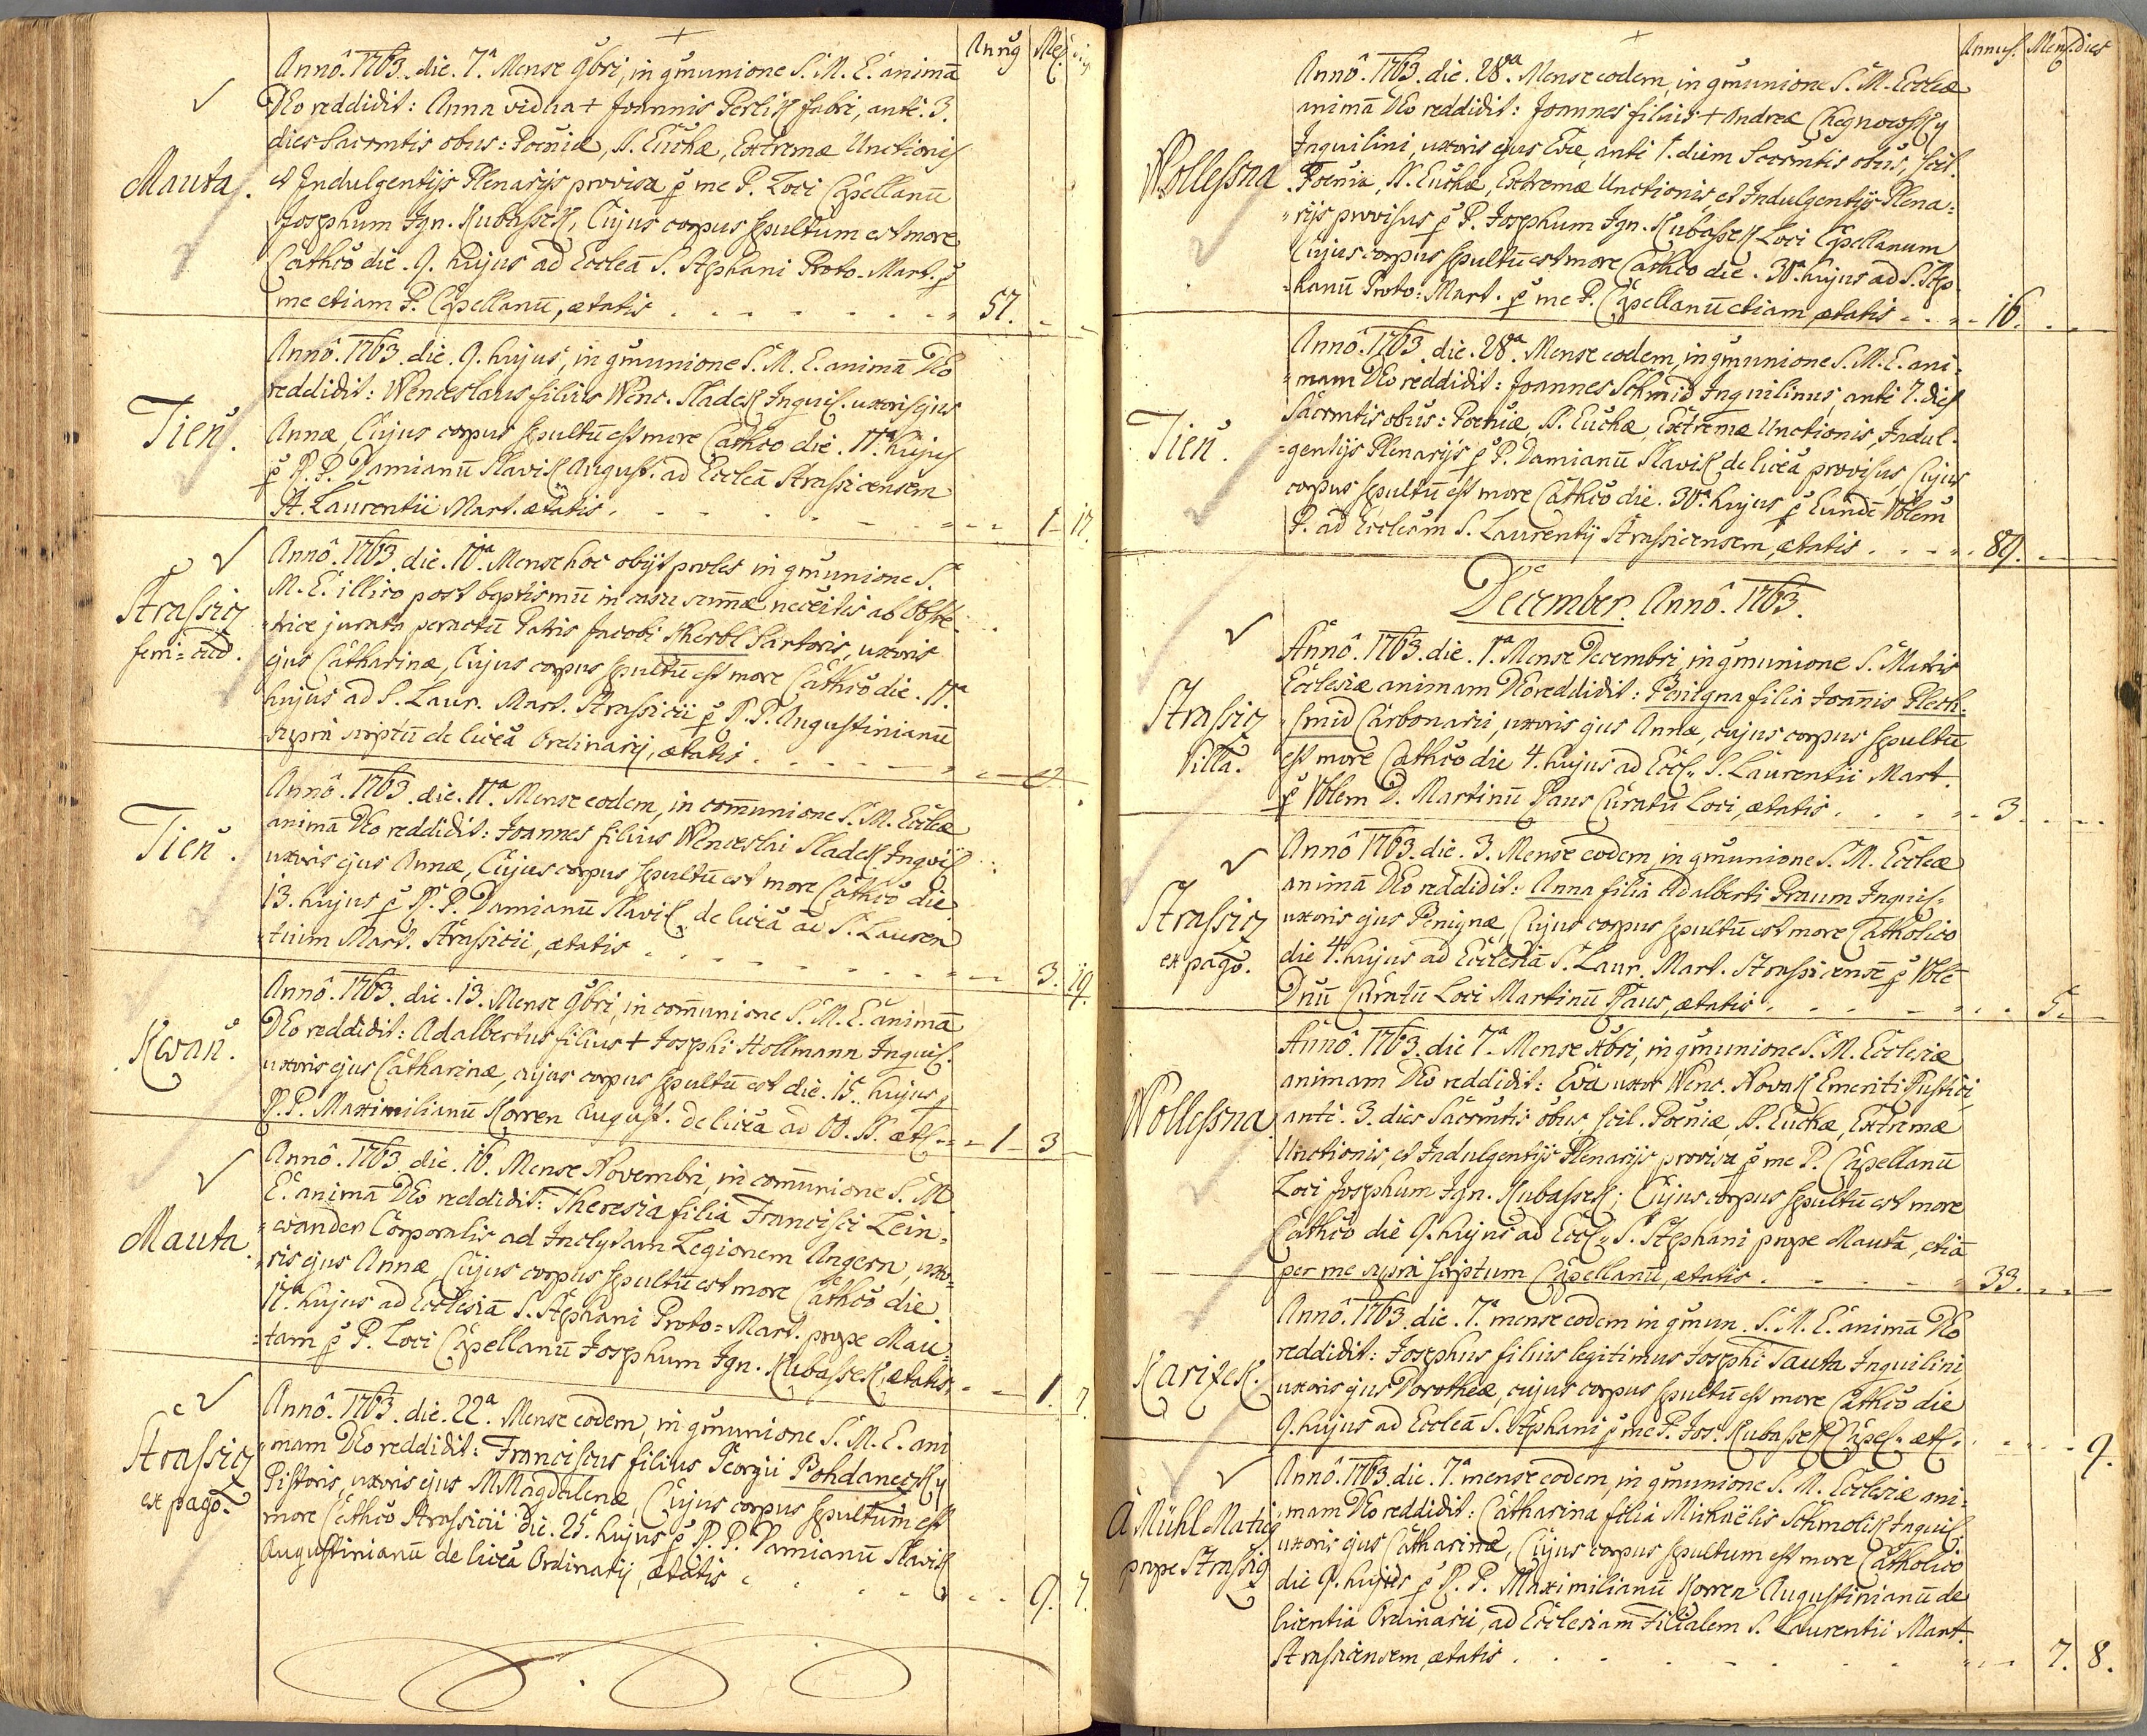 Annus Mens. dies
Mauta.
Annô. 1763. die. 7.ª Mense 9bri, in gmunione S. M. E. animã
DEo reddidit: Anna vidua + Joannis Perlik fabri, ante. 3.
dies Sacrmtis obus: Poeniæ, SS. Euchæ, Extremæ Unctionis
et Indulgentijs Plenarijs provisa p me P. Loci Capellanũ
Josephum Ign. Kubassek, Cujus corpus sepultum est more
Cathco die. 9. hujus ad Eccleã S. Stephani Proto-Mart. p
me etiam P. Capellanũ, ætatis . . . . . 57.
Tien.
Annô. 1763. die. 9. hujus, in gmunione S. M. E. animã DEo
reddidit: Wenceslaus filius Wenc. Sladek Inquil. uxoris ejus
Annæ, Cujus corpus sepultũ est more Cathco die. 11.ª hujus
p R. P. Damianũ Slavik August. ad Eccleã Strassicensem
St. Laurentii Mart. ætatis . . . . . 1 - 17.
Strassicz
Annô. 1763. die. 10.ª Mense hoc obijt proles in gmunione S.
M. E. illico post baptismũ in casu summæ necessitatis ab Obste-
trice jurata peractũ Patris Jacobi Skerbl Sartoris, uxoris
ejus Catharinæ, Cujus corpus sepultũ est more Cathco die. 11.ª
hujus ad S. Laur. Mart. Strassicii p R. P. Augustinianũ
supra scriptũ de liceã Ordinarij, ætatis . . . . .
Tien.
Annô. 1763. die. 11.ª Mense eodem, in com̃unione S. M. Eccleæ
animã DEo reddidit: Joannes filius Wenceslai Sladek Inquil.
uxoris ejus Annæ, Cujus corpus sepultũ est more Cathco die
13. hujus p R. P. Damianũ Slavik de liceã ad S. Lauren
tium Mart. Strassicii, ætatis . . . . . 3. 19.
Kwan.
Annô. 1763. die. 13. Mense 9bri, in com̃unione S. M. E. animã
DEo reddidit: Adalbertus filius + Josephi Hollmann Inquil.
uxoris ejus Catharinæ, cujus corpus sepultũ est die. 15. hujus p
R. P. Maximilianũ Korren August. de liceã ad OO. SS. æt. - 1 - 3
Mauta.
Annô. 1763. die. 16. Mense Novembri, in com̃unione S. M.
E. animã DEo reddidit: Theresia filia Francisci Lein-
wander Corporalis ad Inclytam Legionem Angern, uxo-
ris ejus Annæ, Cujus corpus sepultũ est more Cathco die
17.ª hujus ad Ecclesiã S. Stephani Proto-Mart. prope Mau-
tam p P. Loci Capellanũ Josephum Ign. Kubassek, ætatis. - 1. 7.
Strassicz
ex pago.
Annô. 1763. die. 22.ª Mense eodem, in gmunione S. M. E. ani
mam DEo reddidit: Franciscus filius Georgii Bohdanecky
Pistoris, uxoris ejus M Magdalenæ, Cujus corpus sepultum est
more Cathco Strassicii die. 25. hujus p R. P. Damianũ Slavik
Augustinianũ de liceã Ordinarij, ætatis . . . . . 9. 7.
Annus. Mens. dies
Wollessna
Annô. 1763. die. 28.ª Mense eodem, in gmunione S. M. Eccleæ
animã DEo reddidit: Joannes filius + Andreæ Chegnowsky
Inquilini, uxoris ejus Evæ, ante 1. diem Sacrmtis obus, scil.
Poenia, SS. Euchæ, Extremæ Unctionis, et Indulgentijs Plena-
rijs provisus p P. Josephum Ign. Kubassek Loci Capellanum
Cujus corpus sepultũ est more Cathco die. 30.ª hujus ad S. Step
hanũ Proto-Mart. p me P. Capellanũ etiam ætatis . . . . 16.
Tien.
Annô. 1763. die. 28.ª Mense eodem, in gmunione S. M. E. ani-
mam DEo reddidit: Joannes Schmid Inquilinus, ante 7. dies
Sacrmtis obus: Poeniæ, SS. Euchæ, Extremæ Unctionis, Indul-
gentijs Plenarijs p P. Damianũ Slavik de liceã provisus, Cujus
corpus sepultũ est more Cathco die. 30.ª hujus p Eundẽ Vblem
P. ad Ecclesm S. Laurentij Strassicensem, ætatis . . . . . 89.
December. Annô. 1763.
Strassicz
Villa.
Annô. 1763. die. 1.ª Mense Decembri, in gmunione S. Matris
Ecclesiæ animam DEo reddidit: Benigna filia Joannis Plech-
smid Carbonarii, uxoris ejus Annæ, cujus corpus sepultũ
est more Cathco die 4. hujus ad Eccl. S. Laurentii Mart.
p Vblem D. Martinũ Paus Curatũ Loci, ætatis . . . . . 3.
Strassicz
ex pago.
Annô 1763. die. 3. Mense eodem, in gmunione S. M. Eccleæ
animã DEo reddidit: Anna filia Adalberti Praum Inquil.
uxoris ejus Benignæ, Cujus corpus sepultũ est more Catholico
die 4. hujus ad Ecclesiã S. Laur. Mart. Strassicensẽ p Vblẽ
Dnũ Curatũ Loci Martinũ Paus, ætatis . . . . . 5.
Wollessna.
Annô. 1763. die 7.ª Mense Xbri, in gmunione S. M. Ecclesiæ
animam DEo reddidit: Eva uxor Wenc. Nowak Emeriti Rustici,
ante. 3. dies Sacrmtis obus, scil. Poeniæ, SS. Euchæ, Extremæ
Unctionis, et Indulgentijs Plenarijs provisa p me P. Capellanũ
Loci Josephum Ign. Kubassek; Cujus corpus sepultũ est more
Cathco die 9. hujus ad Eccl. S. Stephani prope Mautã, etiã
per me supra scriptum Capellanũ, ætatis . . . . . 33.
Karizek.
Annô. 1763. die. 7.ª mense eodem in gmun. S. M. E. animã DEo
reddidit: Josephus filius legitimus Josephi Tauta Inquilini
uxoris ejus Dorotheæ, cujus corpus sepultũ est more Cathco die
9. hujus ad Eccleã S. Stephani p me P. Jos. Kubassek Capel. æt. . . . . 9.
prope Strassicz
Annô. 1763. die. 7.ª mense eodem, in gmunione S. M. Ecclesiæ ani-
mam DEo reddidit: Catharina filia Michaëlis Schmolik Inquil.
uxoris ejus Catharinæ, Cujus corpus sepultum est more Catholico
die 9. hujus p R. P. Maximilianũ Korren Augustinianũ de
licentia Ordinarii, ad Ecclesiam Filialem S. Laurentii Mart.
Strassicensem, ætatis . . . . . 7. 8.